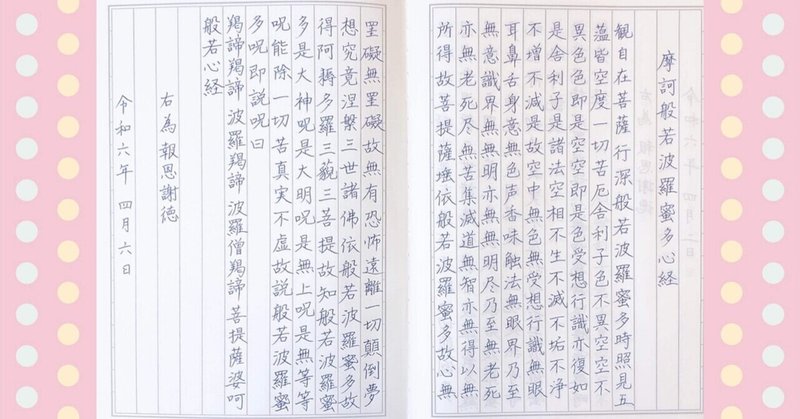 摩訶般若波羅蜜多心経
観自在菩薩行深般若波羅蜜多時照見五
蘊皆空度一切苦厄舎利子色不異空空不
異色色即是空空即是色受想行識亦復如
是舎利子是諸法空相不生不滅不垢不浄
不増不減是故空中無色無受想行識無眼
耳鼻舌身意無色声香味触法無眼界乃至
無意識界無無明亦無無明尽乃至無老死
亦無老死尽無苦集滅道無智亦無得以無
所得故菩提薩埵依般若波羅蜜多故心無
罣礙無罣礙故無有恐怖遠離一切顛倒夢
想究竟涅槃三世諸佛依般若波羅蜜多故
得阿耨多羅三藐三菩提故知般若波羅蜜
多是大神呪是大明呪是無上呪是無等等
呪能除一切苦真実不虚故説般若波羅蜜
多呪即説呪曰
羯諦羯諦 波羅羯諦 波羅僧羯諦 菩提薩婆呵
般若心経
右為報恩謝徳
令和六年 四月六日